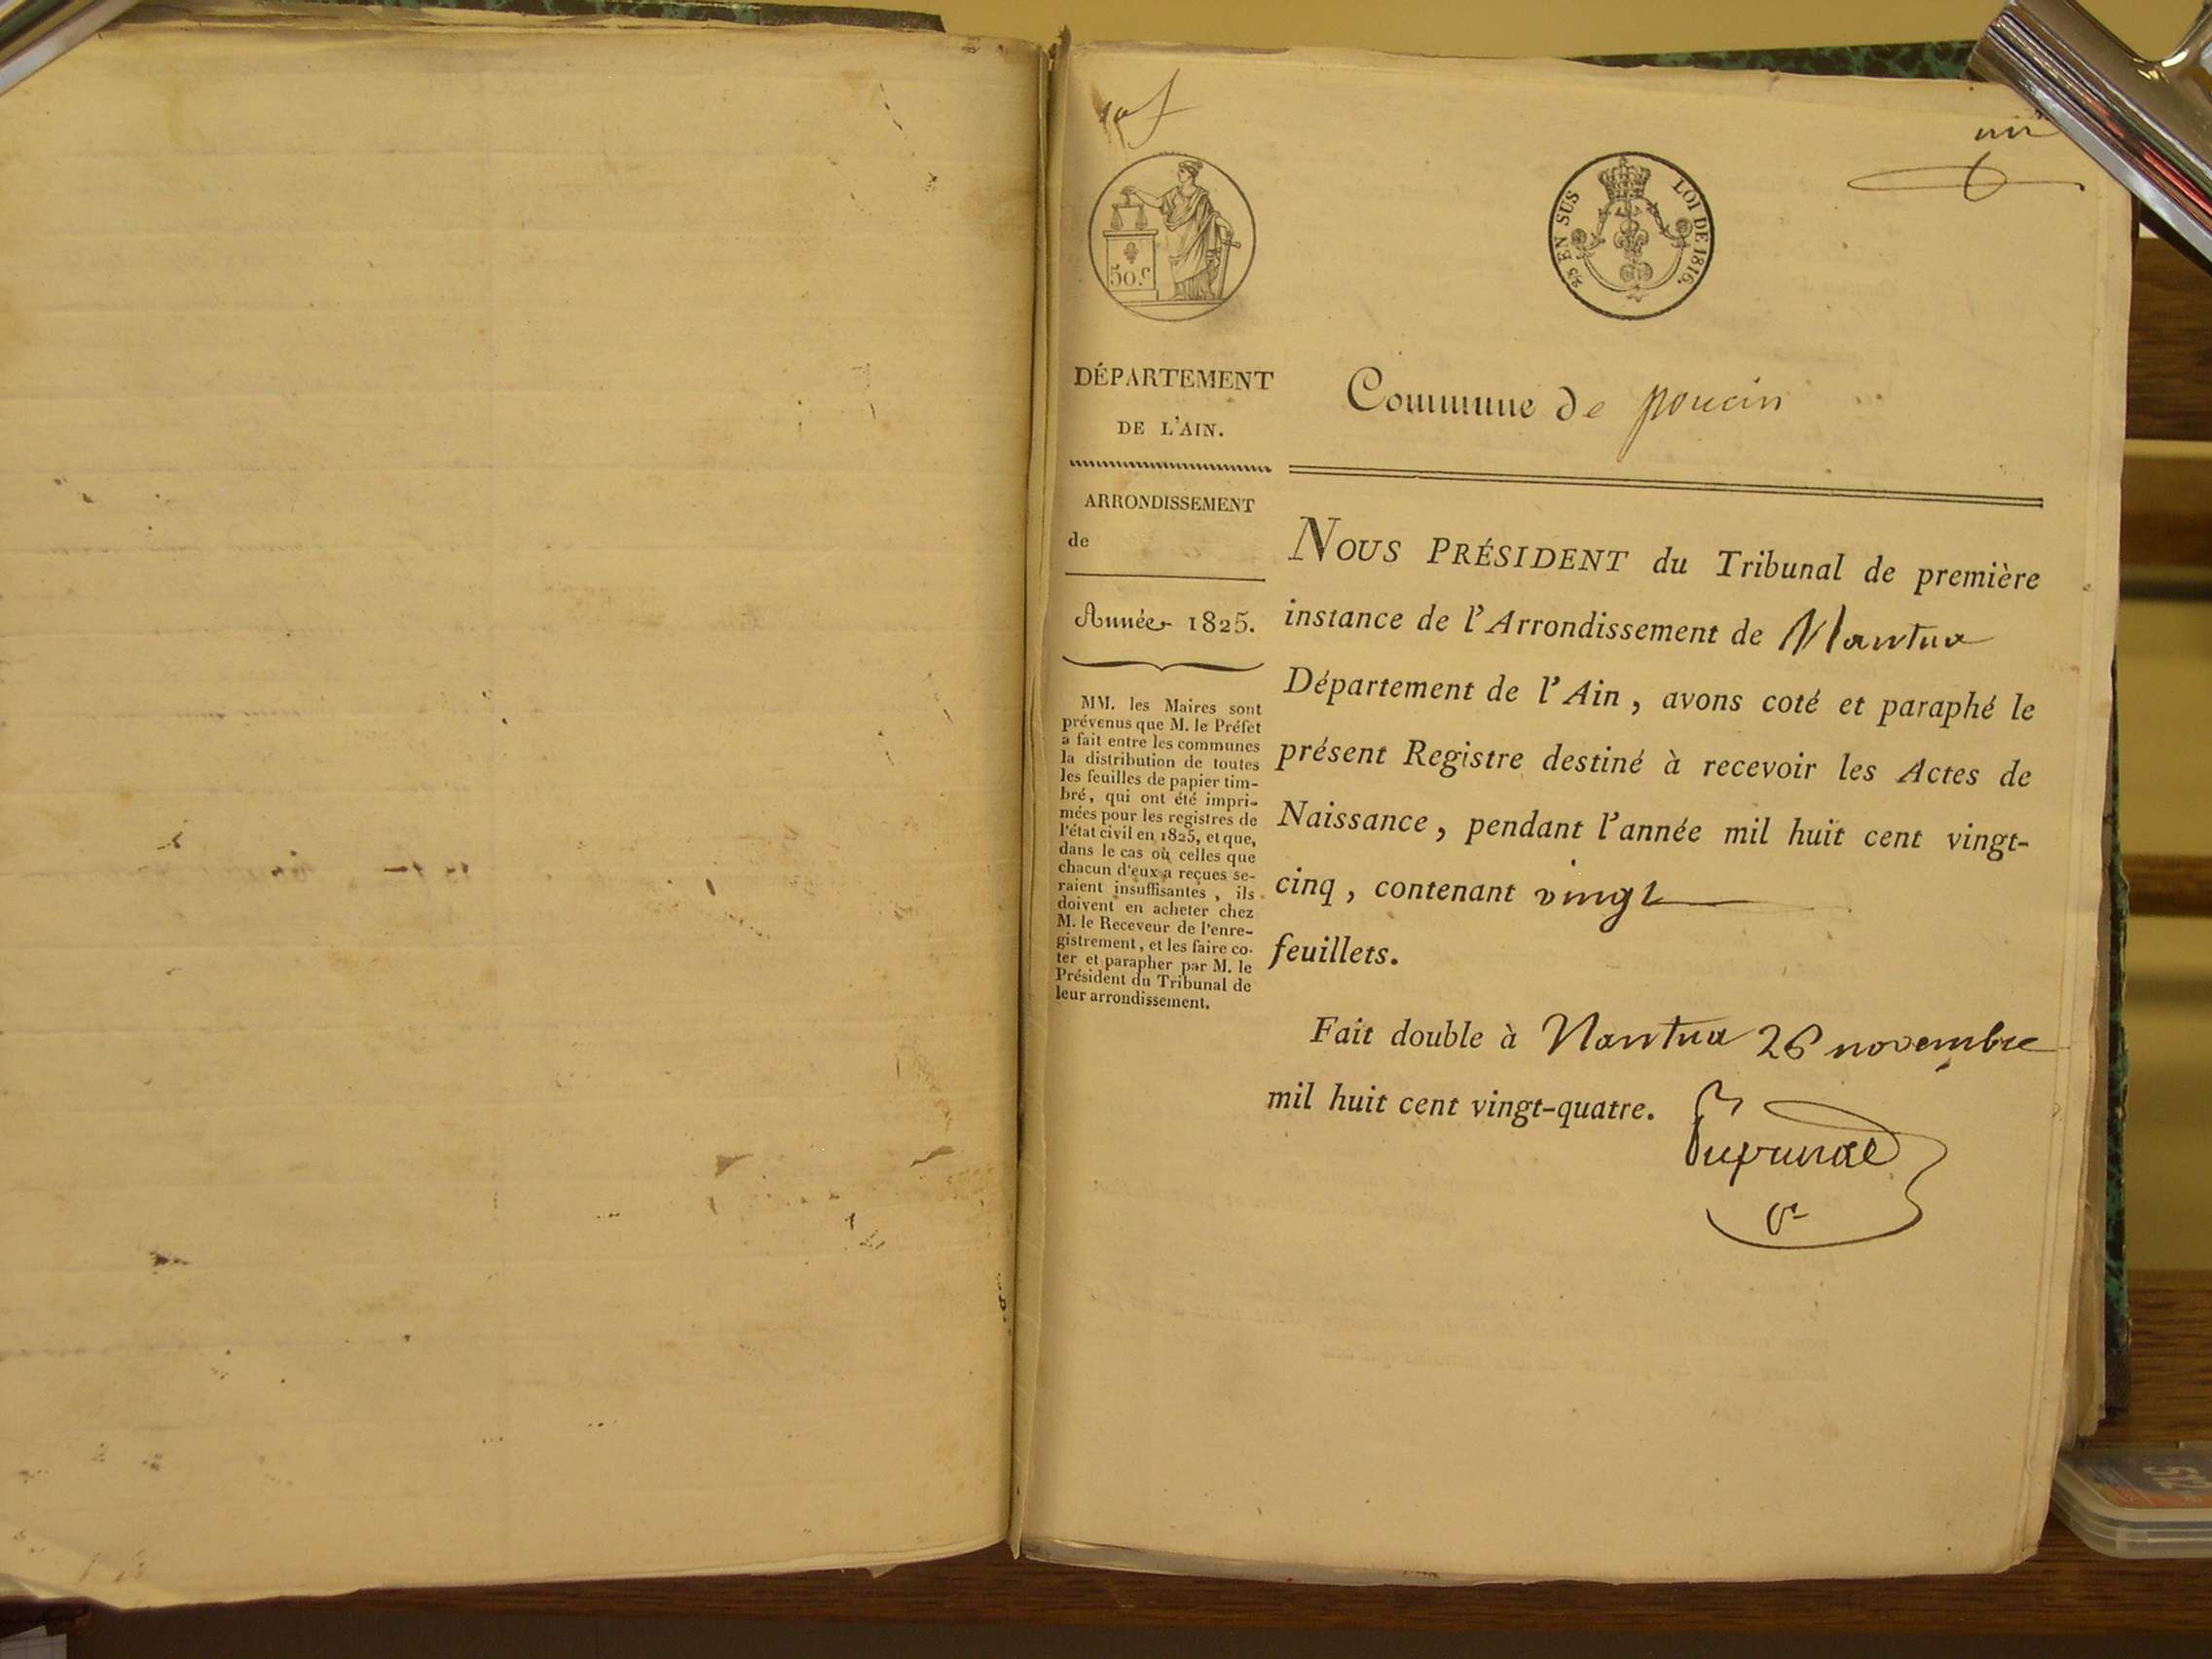 un
50.c
2/5 EN SUS LOI DE 1816.
DÉPARTEMENT
DE L'AIN.
ARRONDISSEMENT
de
Année 1825.
MM. les Maires sont
prévenus que M. le Préfet
a fait entre les communes
la distribution de toutes
les feuilles de papier tim-
bré, qui ont été impri-
mées pour les registres de
l'état civil en 1825, et que,
dans le cas où celles que
chacun d'eux a reçues se-
raient insuffisantes, ils
doivent en acheter chez
M. le Receveur de l'enre-
gistrement, et les faire co-
ter et parapher par M. le
Président du Tribunal de
leur arrondissement.
Commune de poncin
NOUS PRÉSIDENT du Tribunal de première
instance de l'Arrondissement de Nantua
Département de l'Ain, avons coté et paraphé le
présent Registre destiné à recevoir les Actes de
Naissance, pendant l'année mil huit cent vingt-
cinq, contenant vingt
feuillets.
Fait double à Nantua 26 novembre
mil huit cent vingt-quatre.